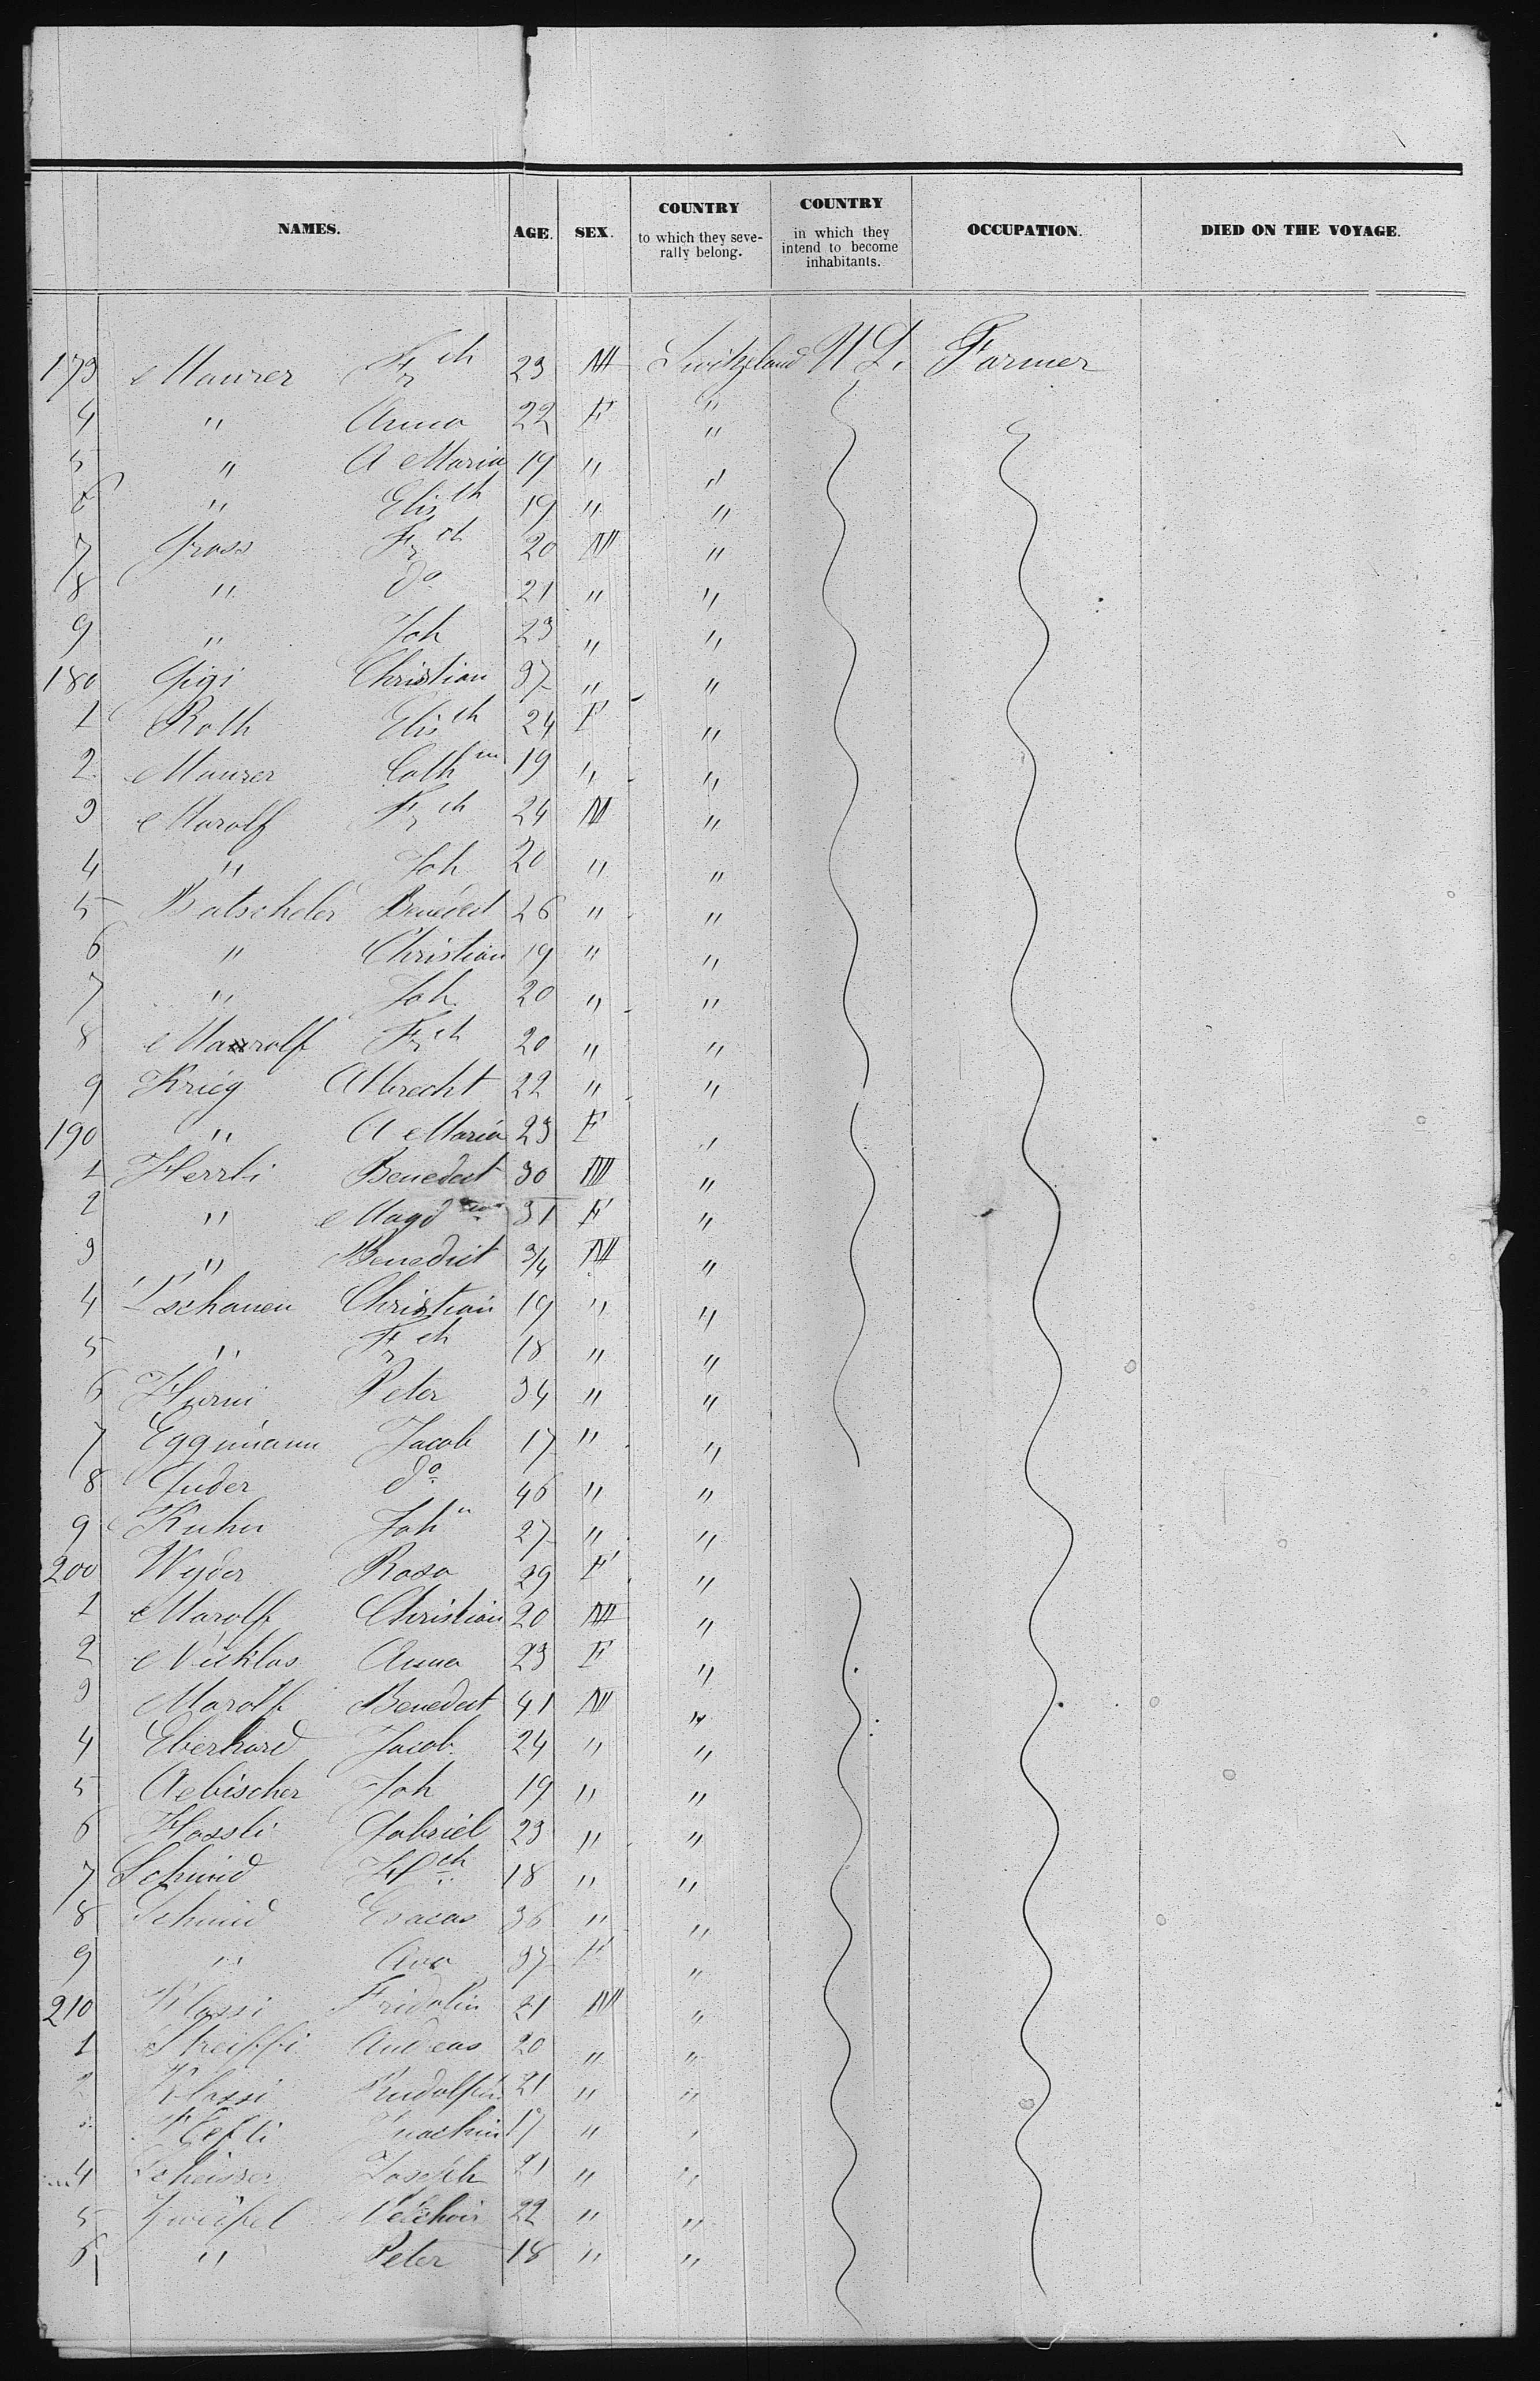 NAMES. AGE. SEX. COUNTRY to which they seve-rally belong. COUNTRY in which they intend to become inhabitants. OCCUPATION. DIED ON THE VOYAGE.
173 Maurer Frch 23 M Switzeland U S. Farmer
4 " Anna 22 F "
"
5 " A Maria 19 " "
6 " Elisth 19 " "
7 Gross Frch 20 M "
8 " do 21 " "
9 " Joh 23 " "
180 Gigi Christian 37 " "
1 Roth Elisth 24 F "
2 Maurer Cath 19 " "
3 Marolf Frch 24 M "
4 " Joh 20 " "
5 Batscheler Benedect 26 " "
6 " Christian 19 " "
7 " Joh 20 " "
8 Marolf Frch 20 " "
9 Krieg Albrecht 22 " "
190 " A Maria 23 F "
1 Herrli Benedect 30 M "
2 " Magd 31 F "
3 " Benedict 3/4 M "
4 Tschanen Christian 19 " "
5 " Frch 18 " "
6 Hurni Peter 34 " "
7 Eggimann Jacob 17 " "
8 Guder do 46 " "
9 Kuhn John 27 " "
200 Wyder Rosa 29 F "
1 Marolf Christian 20 M "
2 Nicklas Anna 23 F "
3 Marolf Benedect 41 M "
4 Eberhard Jacob 24 " "
5 Aebischer Joh 19 " "
6 Hassli Gabriel 23 " "
7 Schmid Hch 18 " "
8 Schmid Esacas 36 " "
9 " 37 F "
210 Klassi Fridolin 21 M "
1 Streiffi Andreas 20 " "
2 Klassi 21 " "
Hefti 17 " "
4 Joseph 21 " "
5 Zweifel Melchior 22 " "
6 " Peter 18 " "